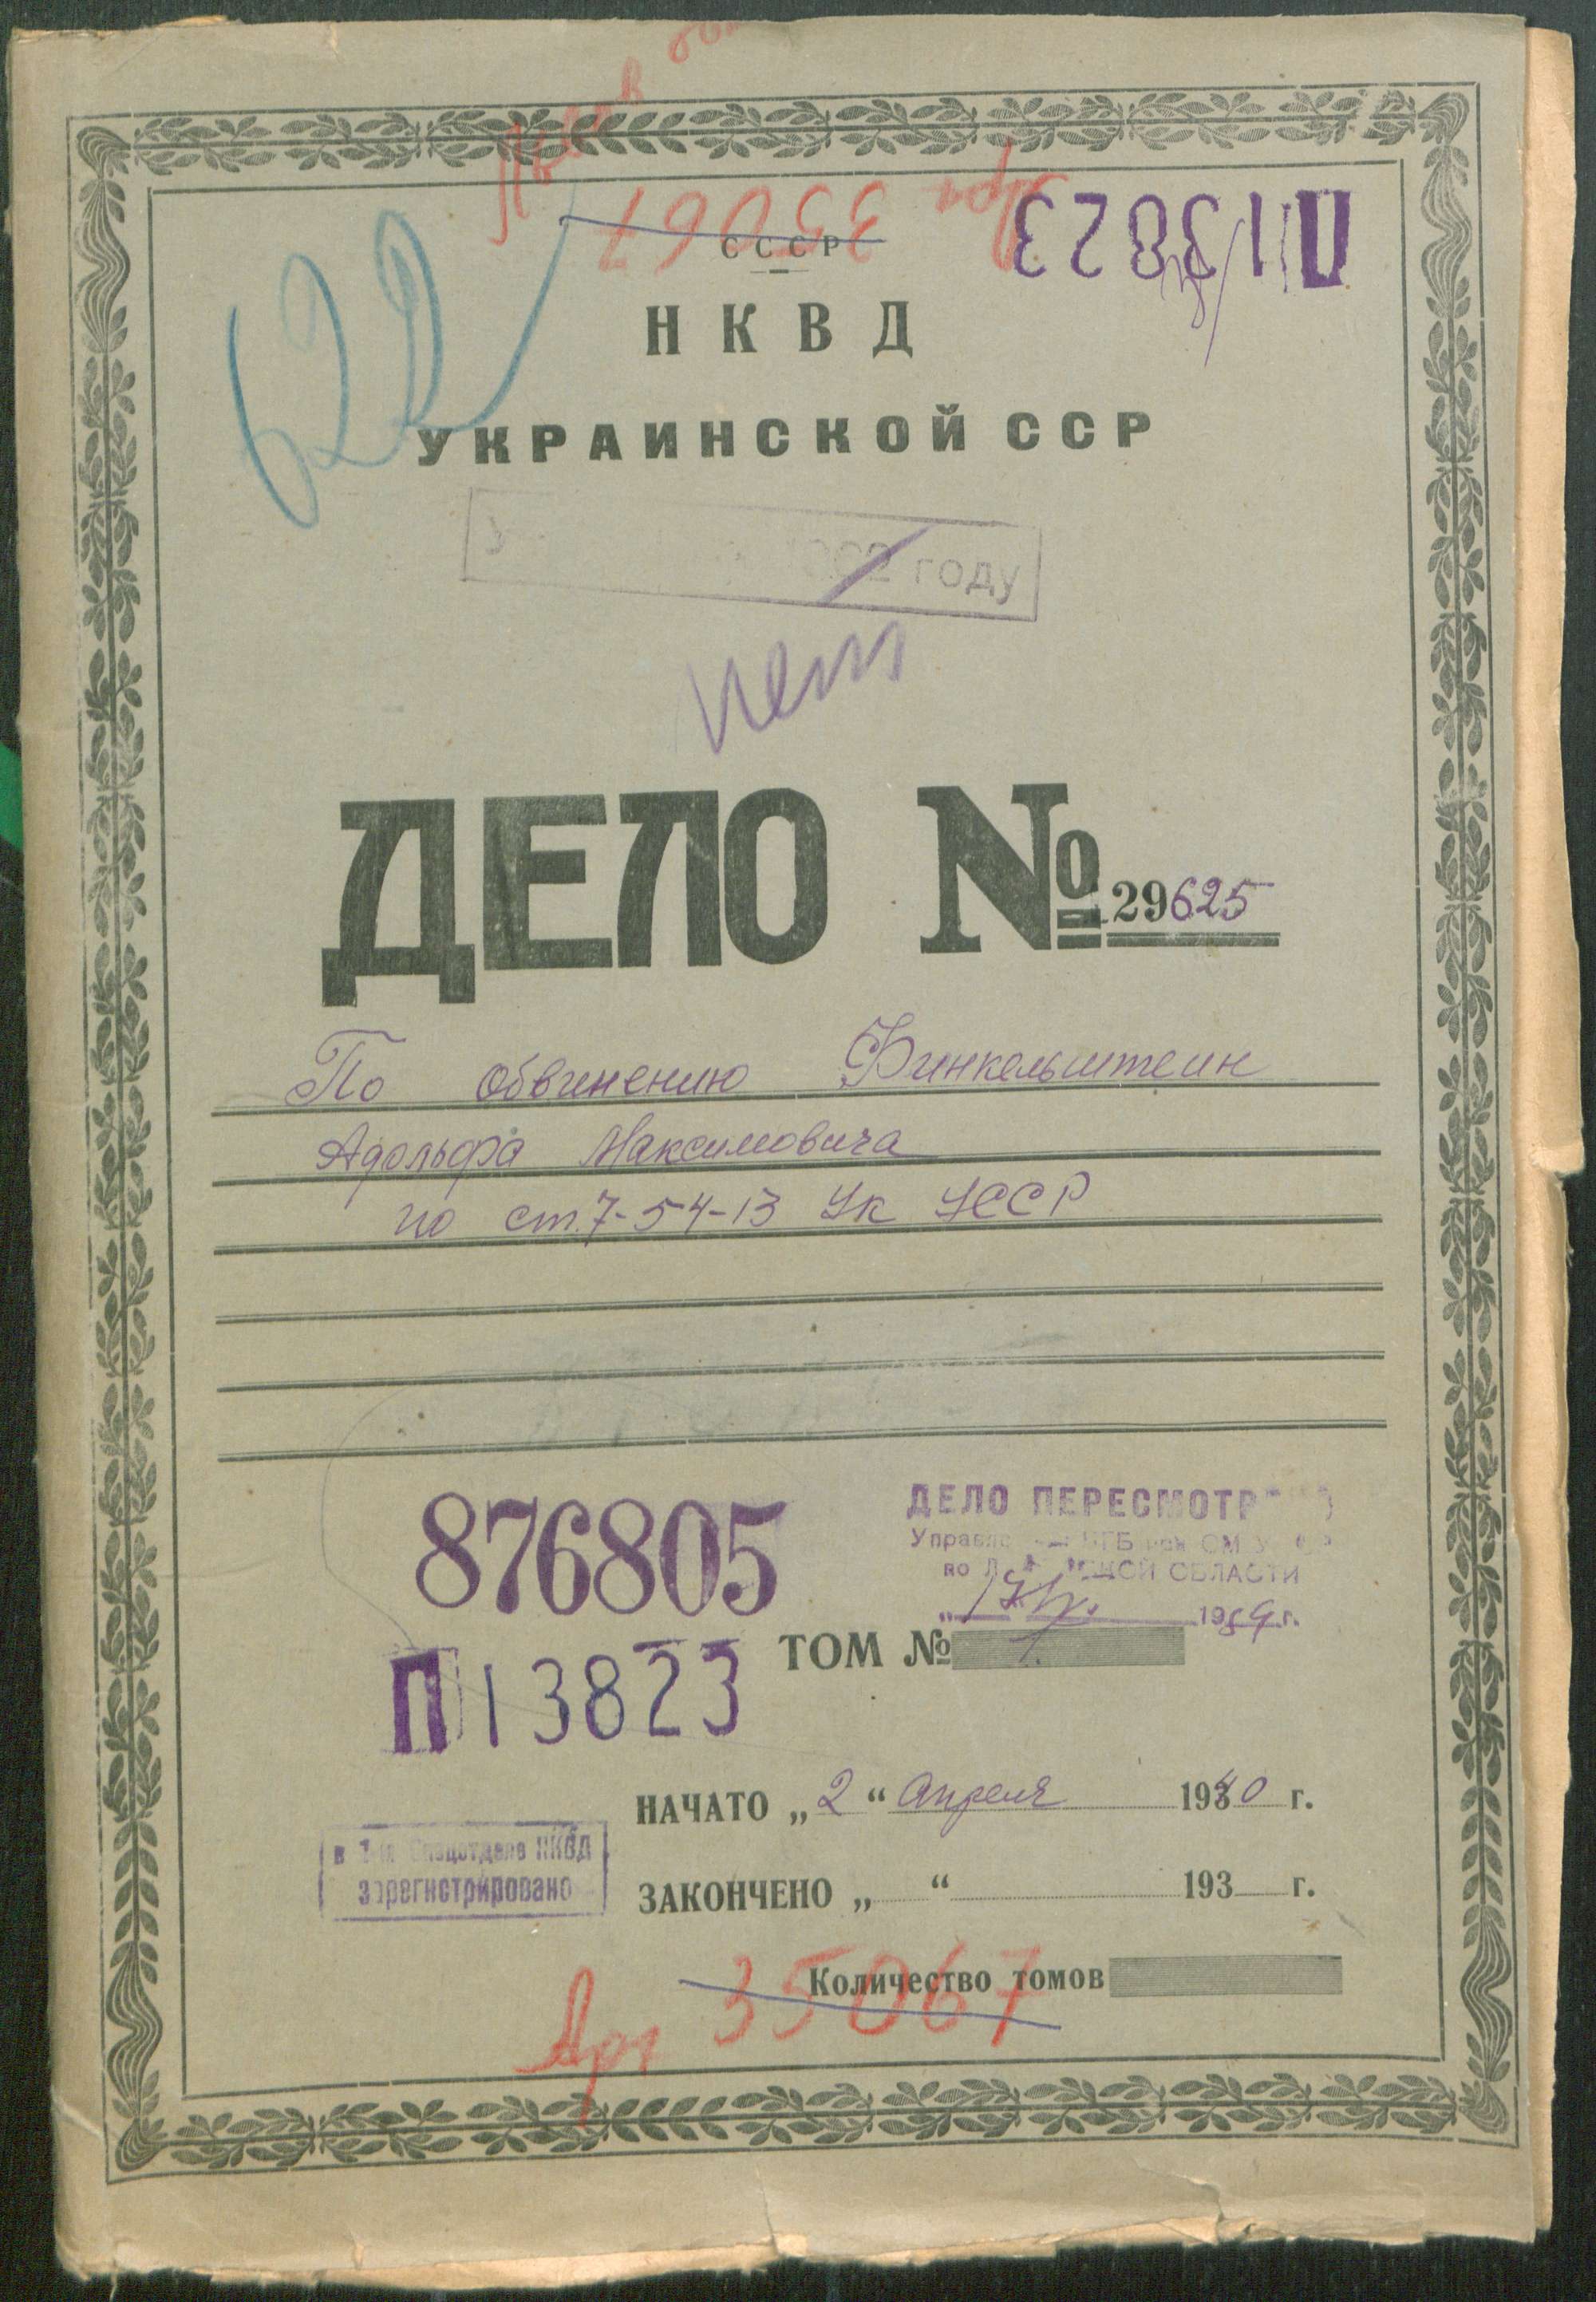 35067
П 13823
СССР
НКВД
622
УКРАИНСКОЙ ССР
году
нет
ДЕЛО № 29625
По обвинению Финкельштеин
Адольфа Максимовича
по ст. 7-54-13 Ук УССР
876805
ДЕЛО ПЕРЕСМОТР
ОБЛАСТИ
П 13823
ТОМ №
НАЧАТО „2“ Апреля 1940 г.
Спецотделе НКВД
зарегистрировано
ЗАКОНЧЕНО „ “ 193 г.
Количество томов
Арх 35067